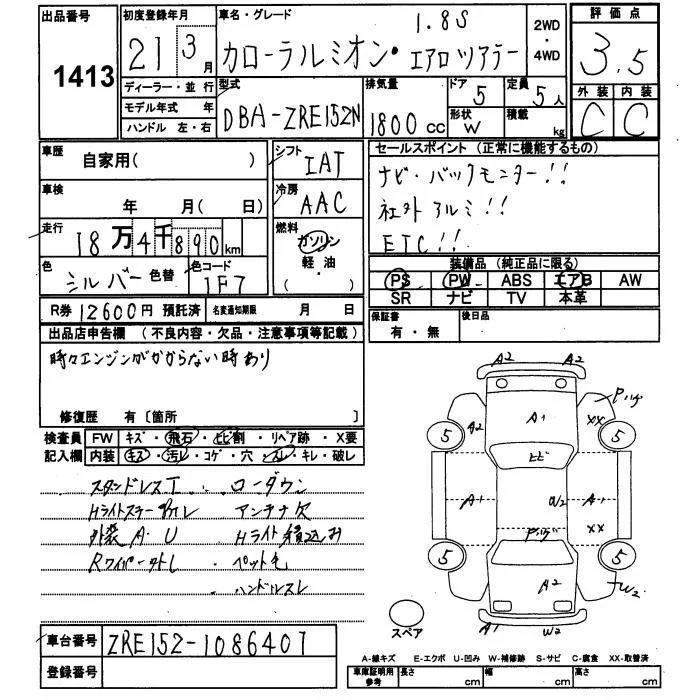 出品番号
1413
初度登録年月
21 3月
ディーラー・並 行
モデル年式 年
ハンドル 左・右
車名・グレード
1.8S
カローラルミオン・エアロツアラー
2WD
・
4WD
評 価 点
3.5
外 装 内 装
C C
型式
DBA-ZRE152N
排気量
1800 cc
ドア
5
形状
W
定員
5人
積載
kg
車歴
自家用( )
車検
年 月( 日)
走行
18万4千890km
色
シルバー 色替
色コード
1F7
シフト
IAT
冷房
AAC
燃料
ガソリン
軽・油
( )
セールスポイント (正常に機能するもの)
ナビ・バックモニター!!
社外アルミ!!
ETC!!
装備品 (純正品に限る)
PS PW ABS エアB AW
SR ナビ TV 本革
R券 12600円 預託済 名変通知期限 月 日
保証書
有・無
後日品
出品店申告欄 (不良内容・欠品・注意事項等記載)
時々エンジンがかからない時あり
修復歴 有〔箇所 〕
検査員 FW キズ・飛石・ヒビ割・リペア跡・X要
記入欄 内装 キズ・汚レ・コゲ・穴・スレ・キレ・破レ
ローダウン
アンテナ欠
外装A・U
ペット毛
ハンドルスレ
A2 A2
A1
A2
XX
5 5
ヒビ
A1 W2 A1
XX
5 5
A2
W2
A1 W2
スペア
車台番号 ZRE152-1086407
登録番号
A-線キズ E-エクボ U-凹み W-補修跡 S-サビ C-腐食 XX-取替済
車庫証明用
参考
長さ cm 幅 cm 高さ cm